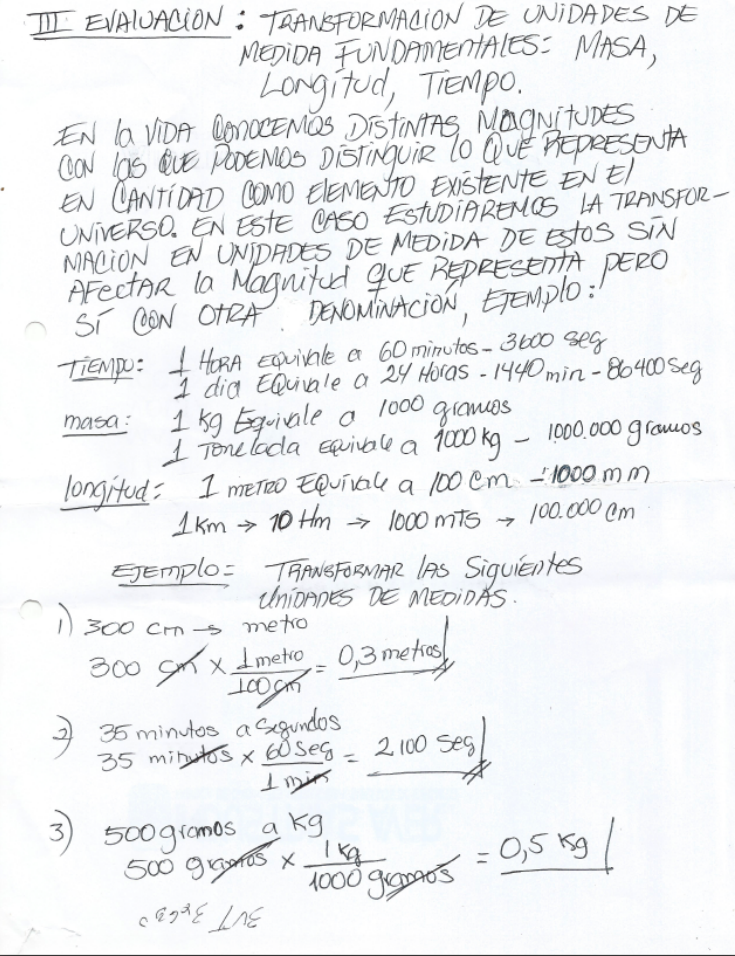 III EVALUACIÓN: TRANSFORMACIÓN DE UNIDADES DE
MEDIDA FUNDAMENTALES: MASA,
Longitud, TIEMPO.
EN la VIDA CONOCEMOS DISTINTAS MAGNITUDES
CON las QUE PODEMOS DISTINGUIR lO QUE REPRESENTA
EN CANTIDAD COMO ElEMENTO EXISTENTE EN El
UNIVERSO. EN ESTE CASO ESTUDIAREMOS LA TRANSFOR-
MACIÓN EN UNIDADES DE MEDIDA DE ESTOS SIN
AFECTAR la Magnitud QUE REPRESENTA PERO
SÍ CON OTRA DENOMINACIÓN, EJEMPlO:
TIEMPO: 1 HORA EQUIVALE a 60 minutos - 3600 seg
1 dia EQUIVALE a 24 Horas - 1440 min - 86400 seg
masa: 1 kg Equivale a 1000 gramos
1 Tonelada equivale a 1000 kg - 1000.000 gramos
longitud: 1 METRO EQUIVALE a 100 cm - 1000 mm
1 Km → 10 Hm → 1000 mts → 100.000 cm
EJEMPlO: TRANSFORMAR lAS Siguientes
UNIDADES DE MEDIDAS.
1) 300 cm → metro
300 cm x 1 metro / 100 cm = 0,3 metros
2) 35 minutos a segundos
35 minutos x 60 seg / 1 min = 2100 seg
3) 500 gramos a kg
500 gramos x 1 kg / 1000 gramos = 0,5 kg